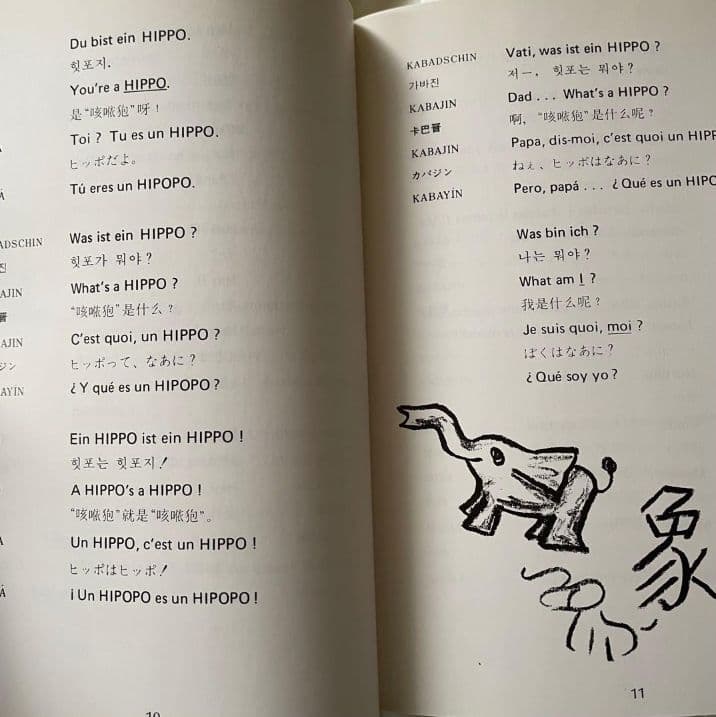 Du bist ein HIPPO.
힛포지.
You're a HIPPO.
是“咳哌狍”呀！
Toi ? Tu es un HIPPO.
ヒッポだよ。
Tú eres un HIPOPO.
ADSCHIN Was ist ein HIPPO ?
진 힛포가 뭐야？
AJIN What's a HIPPO ?
晋 “咳哌狍”是什么？
AJIN C'est quoi, un HIPPO ?
ジン ヒッポって、なあに？
AYÍN ¿Y qué es un HIPOPO ?
Ein HIPPO ist ein HIPPO !
힛포는 힛포지！
A HIPPO's a HIPPO !
“咳哌狍”就是“咳哌狍”。
Un HIPPO, c'est un HIPPO !
ヒッポはヒッポ！
¡ Un HIPOPO es un HIPOPO !
10
KABADSCHIN Vati, was ist ein HIPPO ?
가바진 저ー, 힛포는 뭐야？
KABAJIN Dad . . . What's a HIPPO ?
卡巴晋 啊，“咳哌狍”是什么呢？
KABAJIN Papa, dis-moi, c'est quoi un HIPP
カバジン ねぇ、ヒッポはなあに？
KABAYÍN Pero, papá . . . ¿ Qué es un HIPO
Was bin ich ?
나는 뭐야？
What am I ?
我是什么呢？
Je suis quoi, moi ?
ぼくはなあに？
¿ Qué soy yo ?
象
11